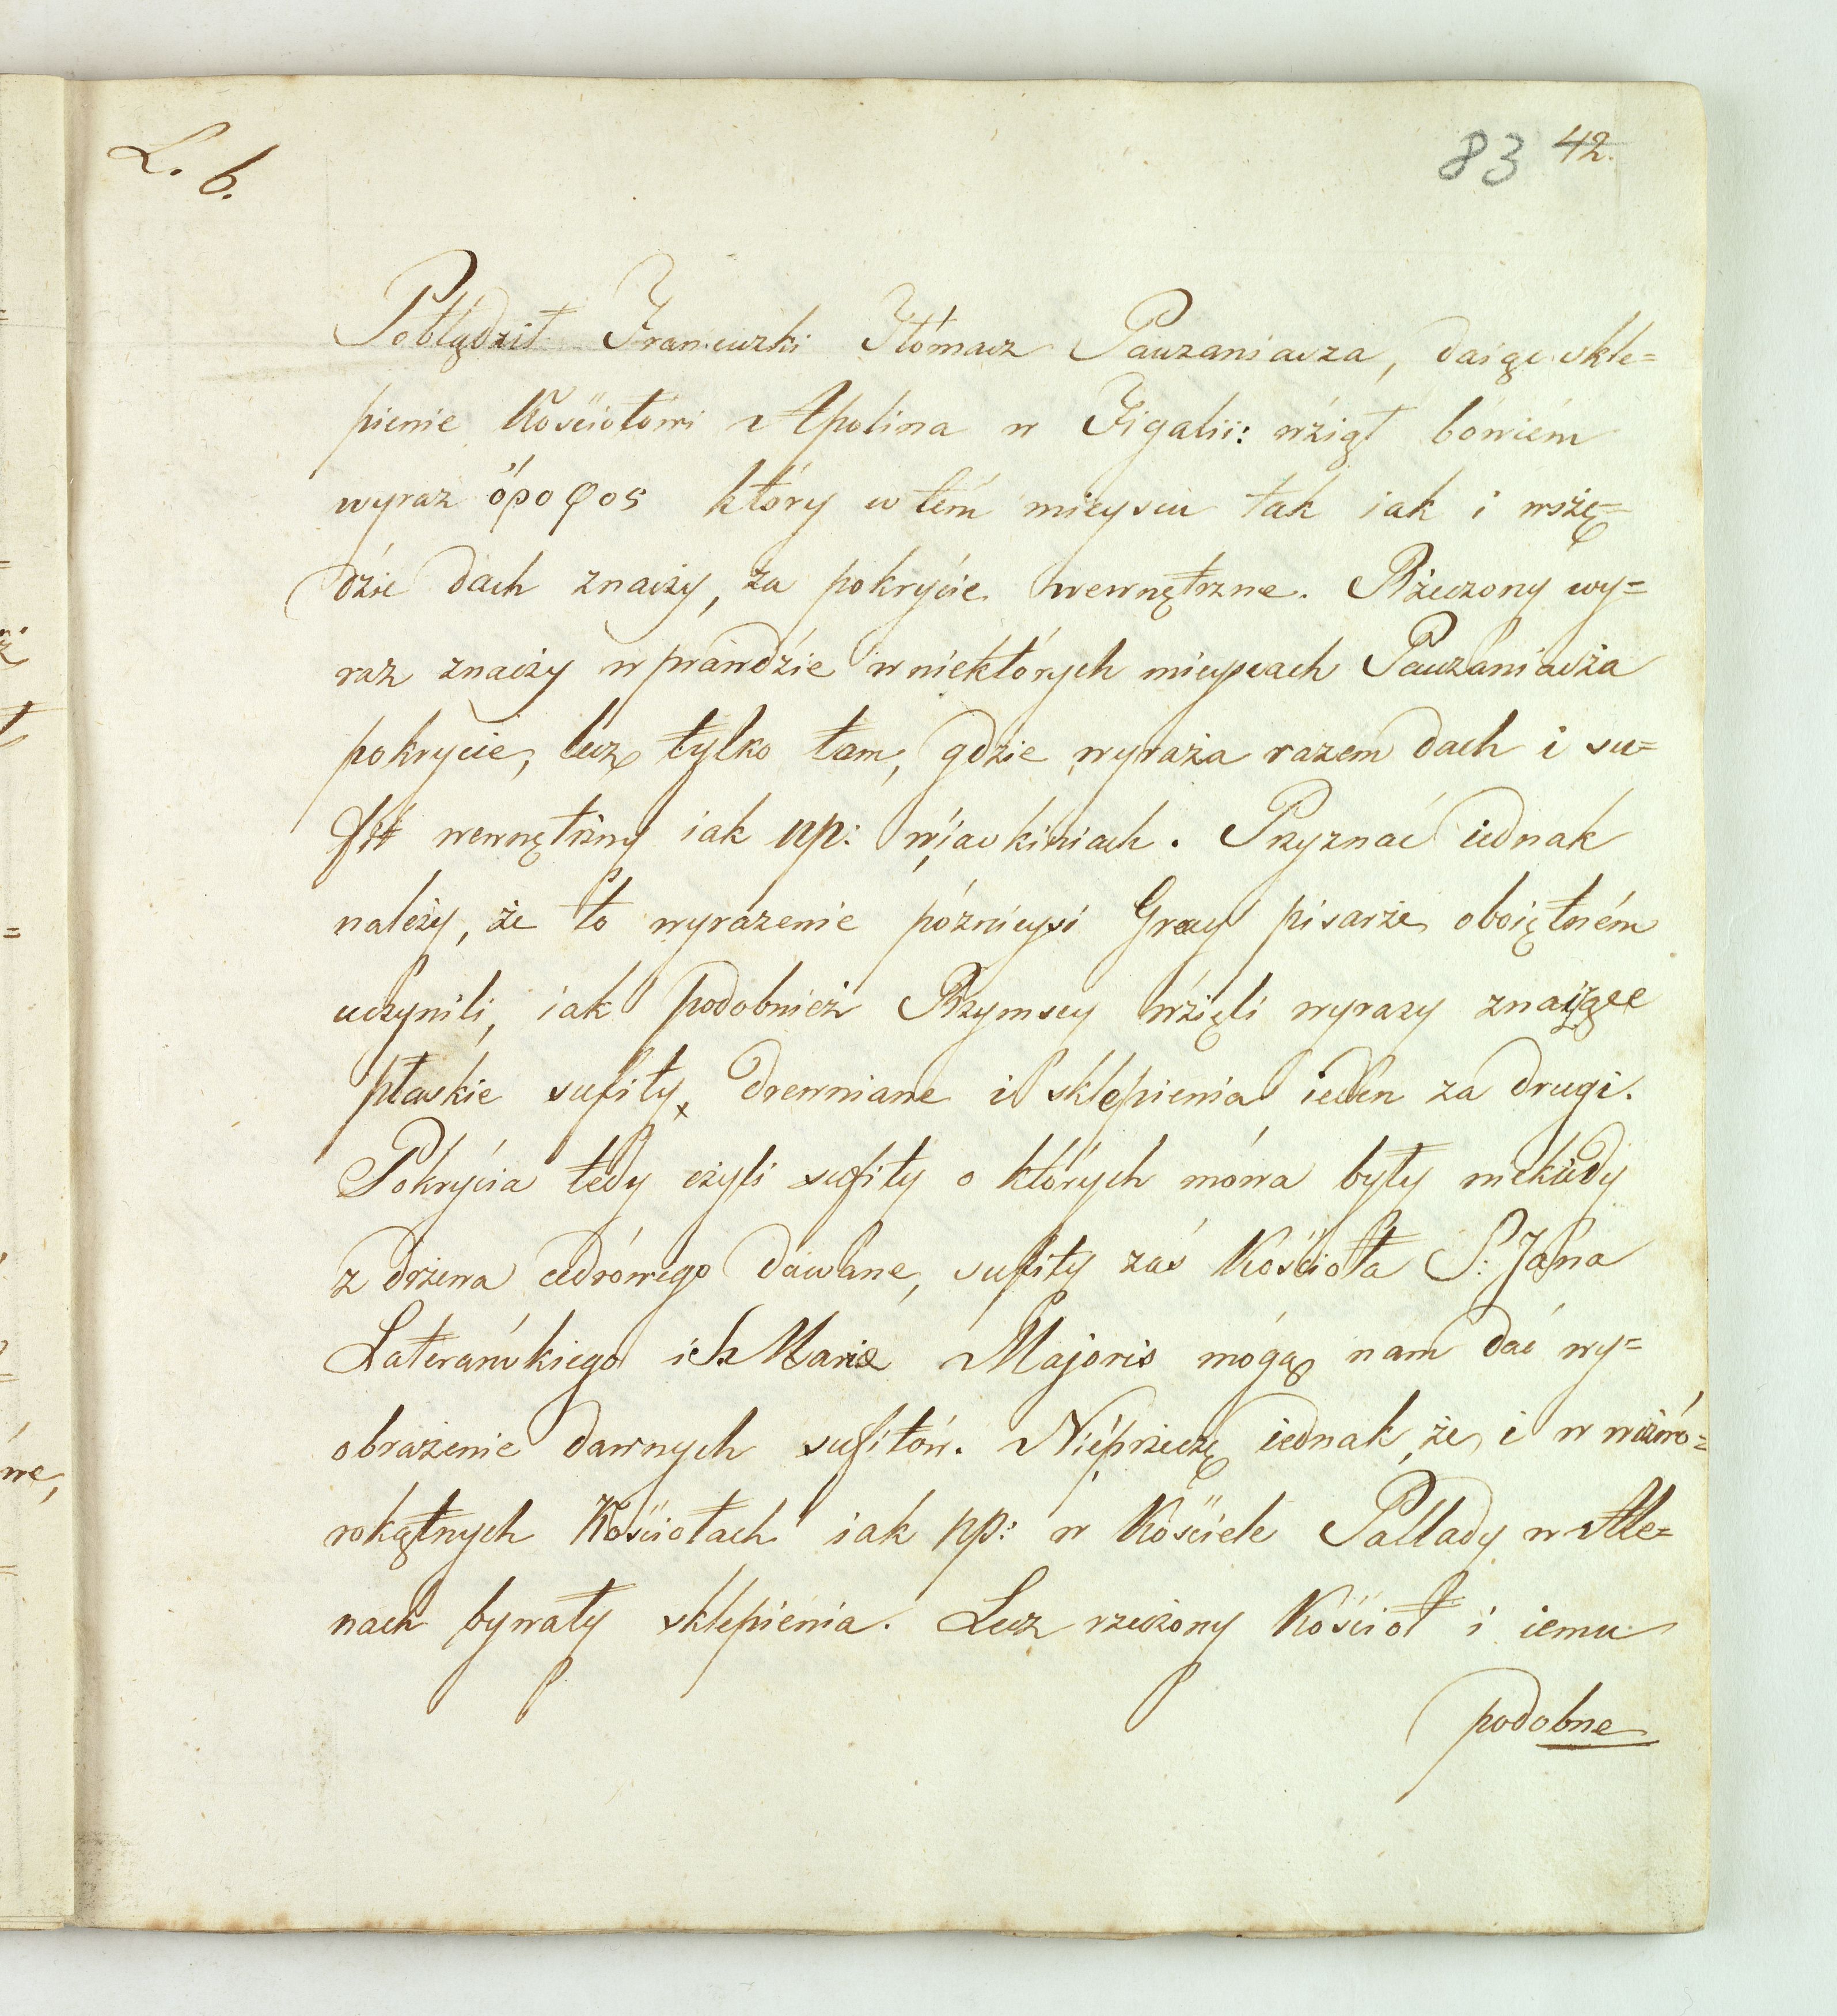 L. b.
83 42.
Pobłądził Francuzki Tłómacz Pauzaniasza, daiąc skle=
pienie Kościołowi Apolina w Figalii: wziął bowiem
wyraz ὄροφος który w tém mieyscu tak iak i wszę=
dzie dach znaczy, za pokrycie wewnętrzne. Rzeczony wy=
raz znaczy wprawdzie w niektórych mieyscach Pauzaniasza
pokrycie, lecz tylko tam, gdzie wyraża razem dach i su=
fit wewnętrzny iak np: w iaskiniach. Przyznać iednak
należy, że to wyrażenie póznieysi Grecy pisarze oboiętném
uczynili, iak podobnież Rzymscy wzięli wyrazy znaczące
płaskie sufity, drewniane i sklepienia ieden za drugi.
Pokrycia tedy czyli sufity o których mowa były niekiedy
z drzewa cedrowego dawane, sufity zaś Kościoła S: Jana
Laterańskiego i S. Mariæ Majoris mogą nam dać wy=
obrażenie dawnych sufitów. Nieprzeczę iednak, że i w czwo=
rokątnych Kościołach iak np: w Kościele Pallady w Ate=
nach bywały sklepienia. Lecz rzeczony Kościoł i iemu
podobne